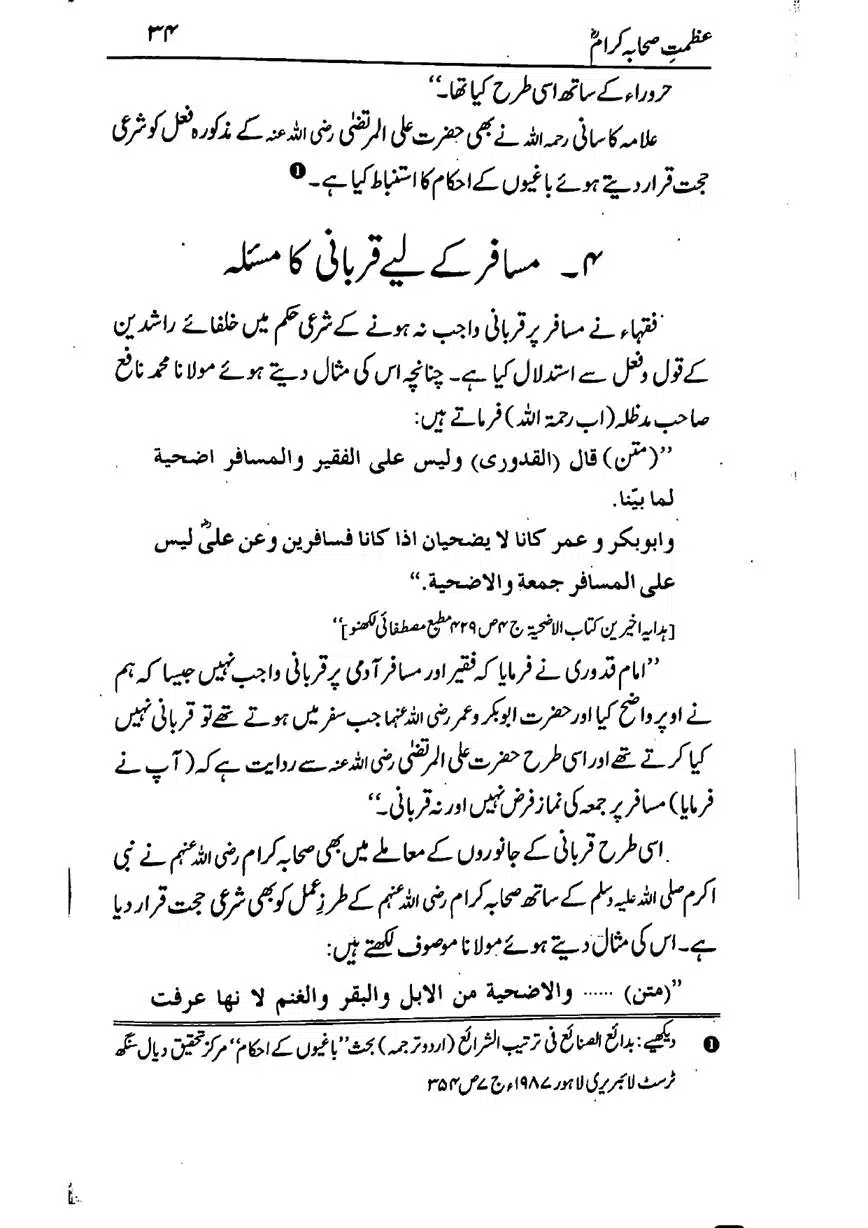 عظمتِ صحابہ کرامؓ ۳۴
حروراء کے ساتھ اسی طرح کیا تھا۔‘‘
علامہ کاسانی رحمہ اللہ نے بھی حضرت علی المرتضیٰ رضی اللہ عنہ کے مذکورہ فعل کو شرعی
حجت قرار دیتے ہوئے باغیوں کے احکام کا استنباط کیا ہے۔ ❶
۴۔ مسافر کے لیے قربانی کا مسئلہ
فقہاء نے مسافر پر قربانی واجب نہ ہونے کے شرعی حکم میں خلفائے راشدین
کے قول وفعل سے استدلال کیا ہے۔ چنانچہ اس کی مثال دیتے ہوئے مولانا محمد نافع
صاحب مدظلہ (اب رحمۃ اللہ) فرماتے ہیں:
’’(متن) قال (القدوری) ولیس علی الفقیر والمسافر اضحیة
لما بیّنا.
وابوبکر و عمر کانا لا یضحیان اذا کانا فسافرین وعن علیؓ لیس
علی المسافر جمعة والاضحیة.‘‘
[ہدایہ اخیرین کتاب الاضحیۃ ج ۴ ص ۴۲۹ مطبع مصطفائی لکھنو]‘‘
’’امام قدوری نے فرمایا کہ فقیر اور مسافر آدمی پر قربانی واجب نہیں جیسا کہ ہم
نے اوپر واضح کیا اور حضرت ابوبکر وعمر رضی اللہ عنہما جب سفر میں ہوتے تھے تو قربانی نہیں
کیا کرتے تھے اور اسی طرح حضرت علی المرتضیٰ رضی اللہ عنہ سے روایت ہے کہ (آپ نے
فرمایا) مسافر پر جمعہ کی نماز فرض نہیں اور نہ قربانی۔‘‘
اسی طرح قربانی کے جانوروں کے معاملے میں بھی صحابہ کرام رضی اللہ عنہم نے نبی
اکرم صلی اللہ علیہ وسلم کے ساتھ صحابہ کرام رضی اللہ عنہم کے طرزِ عمل کو بھی شرعی حجت قرار دیا
ہے۔ اس کی مثال دیتے ہوئے مولانا موصوف لکھتے ہیں:
’’(متن) ...... والاضحیة من الابل والبقر والغنم لا نها عرفت
❶ دیکھیے: بدائع الصنائع فی ترتیب الشرائع (اردو ترجمہ) بحث ’’باغیوں کے احکام‘‘ مرکز تحقیق دیال سنگھ
ٹرسٹ لائبریری لاہور ۱۹۸۷ء ج ۷ ص ۳۵۴